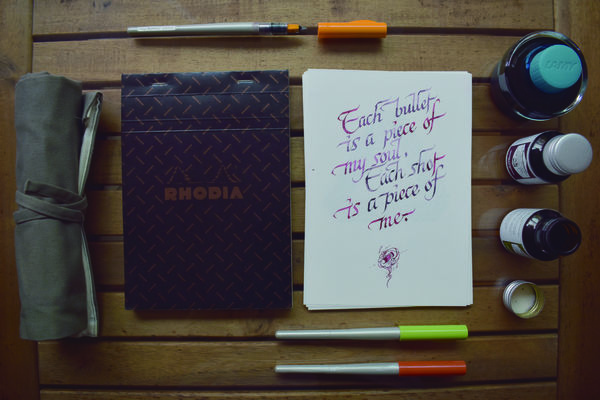 RHODIA
Each bullet
is a piece of
my soul,
Each shot
is a piece of
me.
LAMY